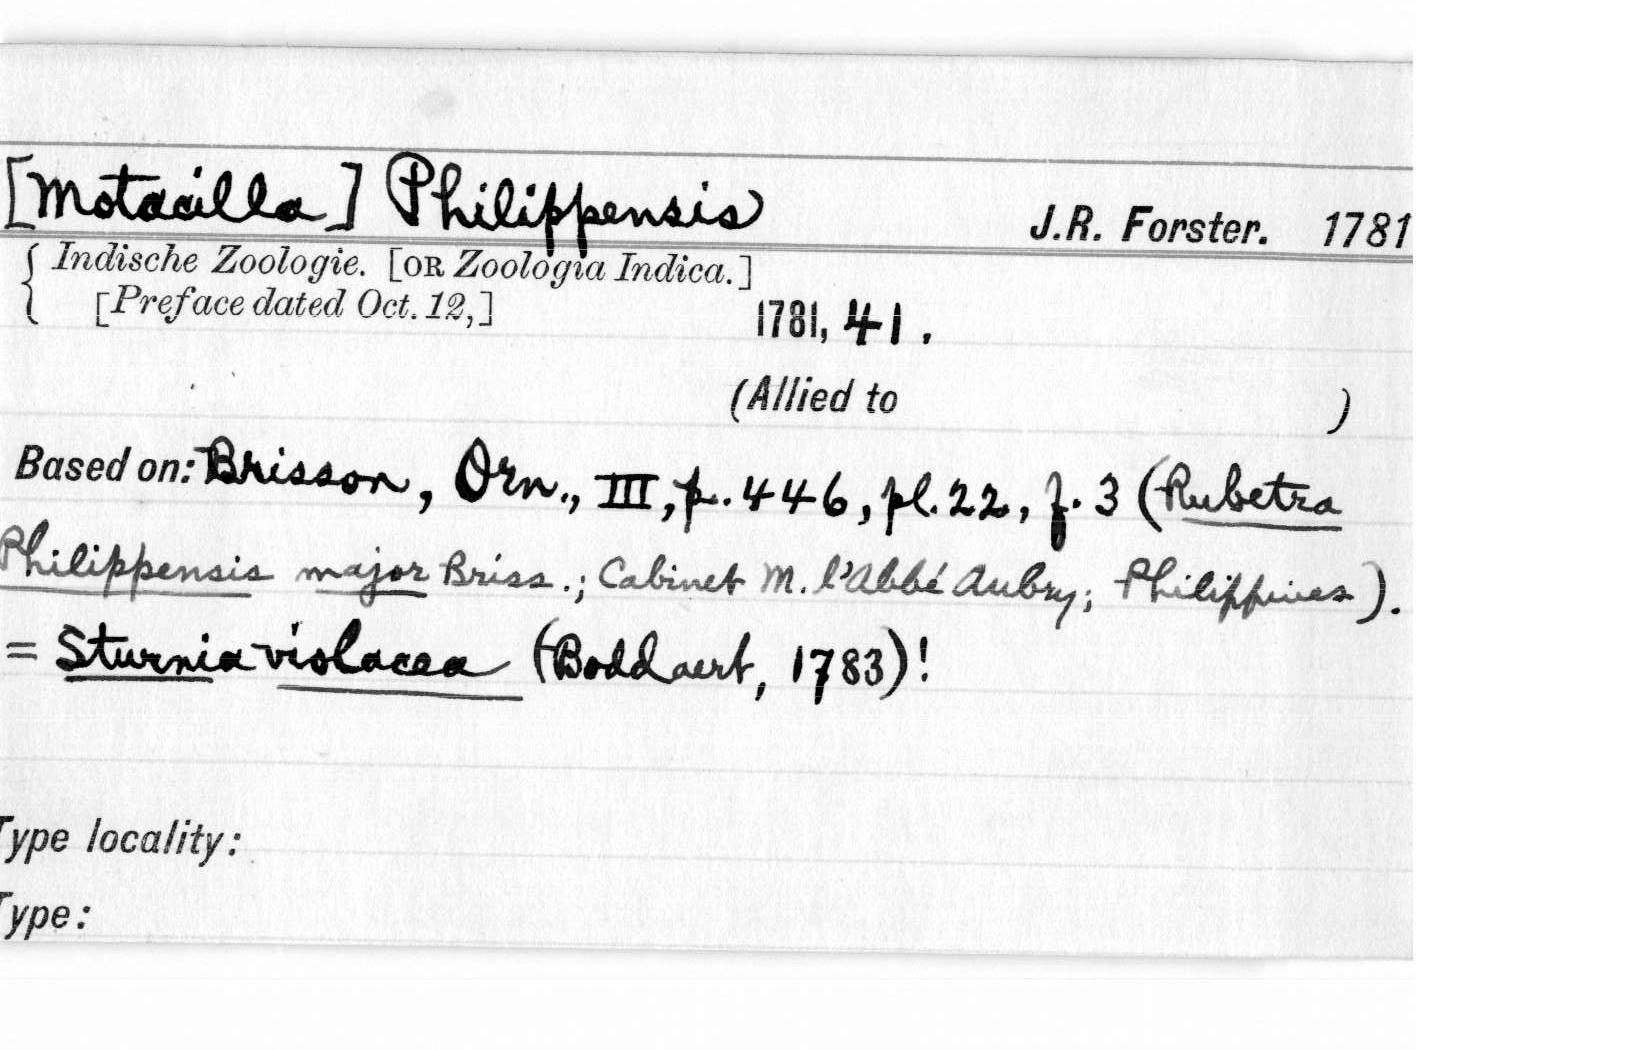 [Motacilla] Philippensis J.R. Forster. 1781
Indische Zoologie. [OR Zoologia Indica.]
[Preface dated Oct. 12,]
1781, 41.
(Allied to )
Based on: Brisson, Orn., III, p. 446, pl. 22, f. 3 (Rubetra
Philippensis major Briss.; Cabinet M. l'Abbé Aubry; Philippines).
= Sturnia violacea (Boddaert, 1783)!
Type locality:
Type: